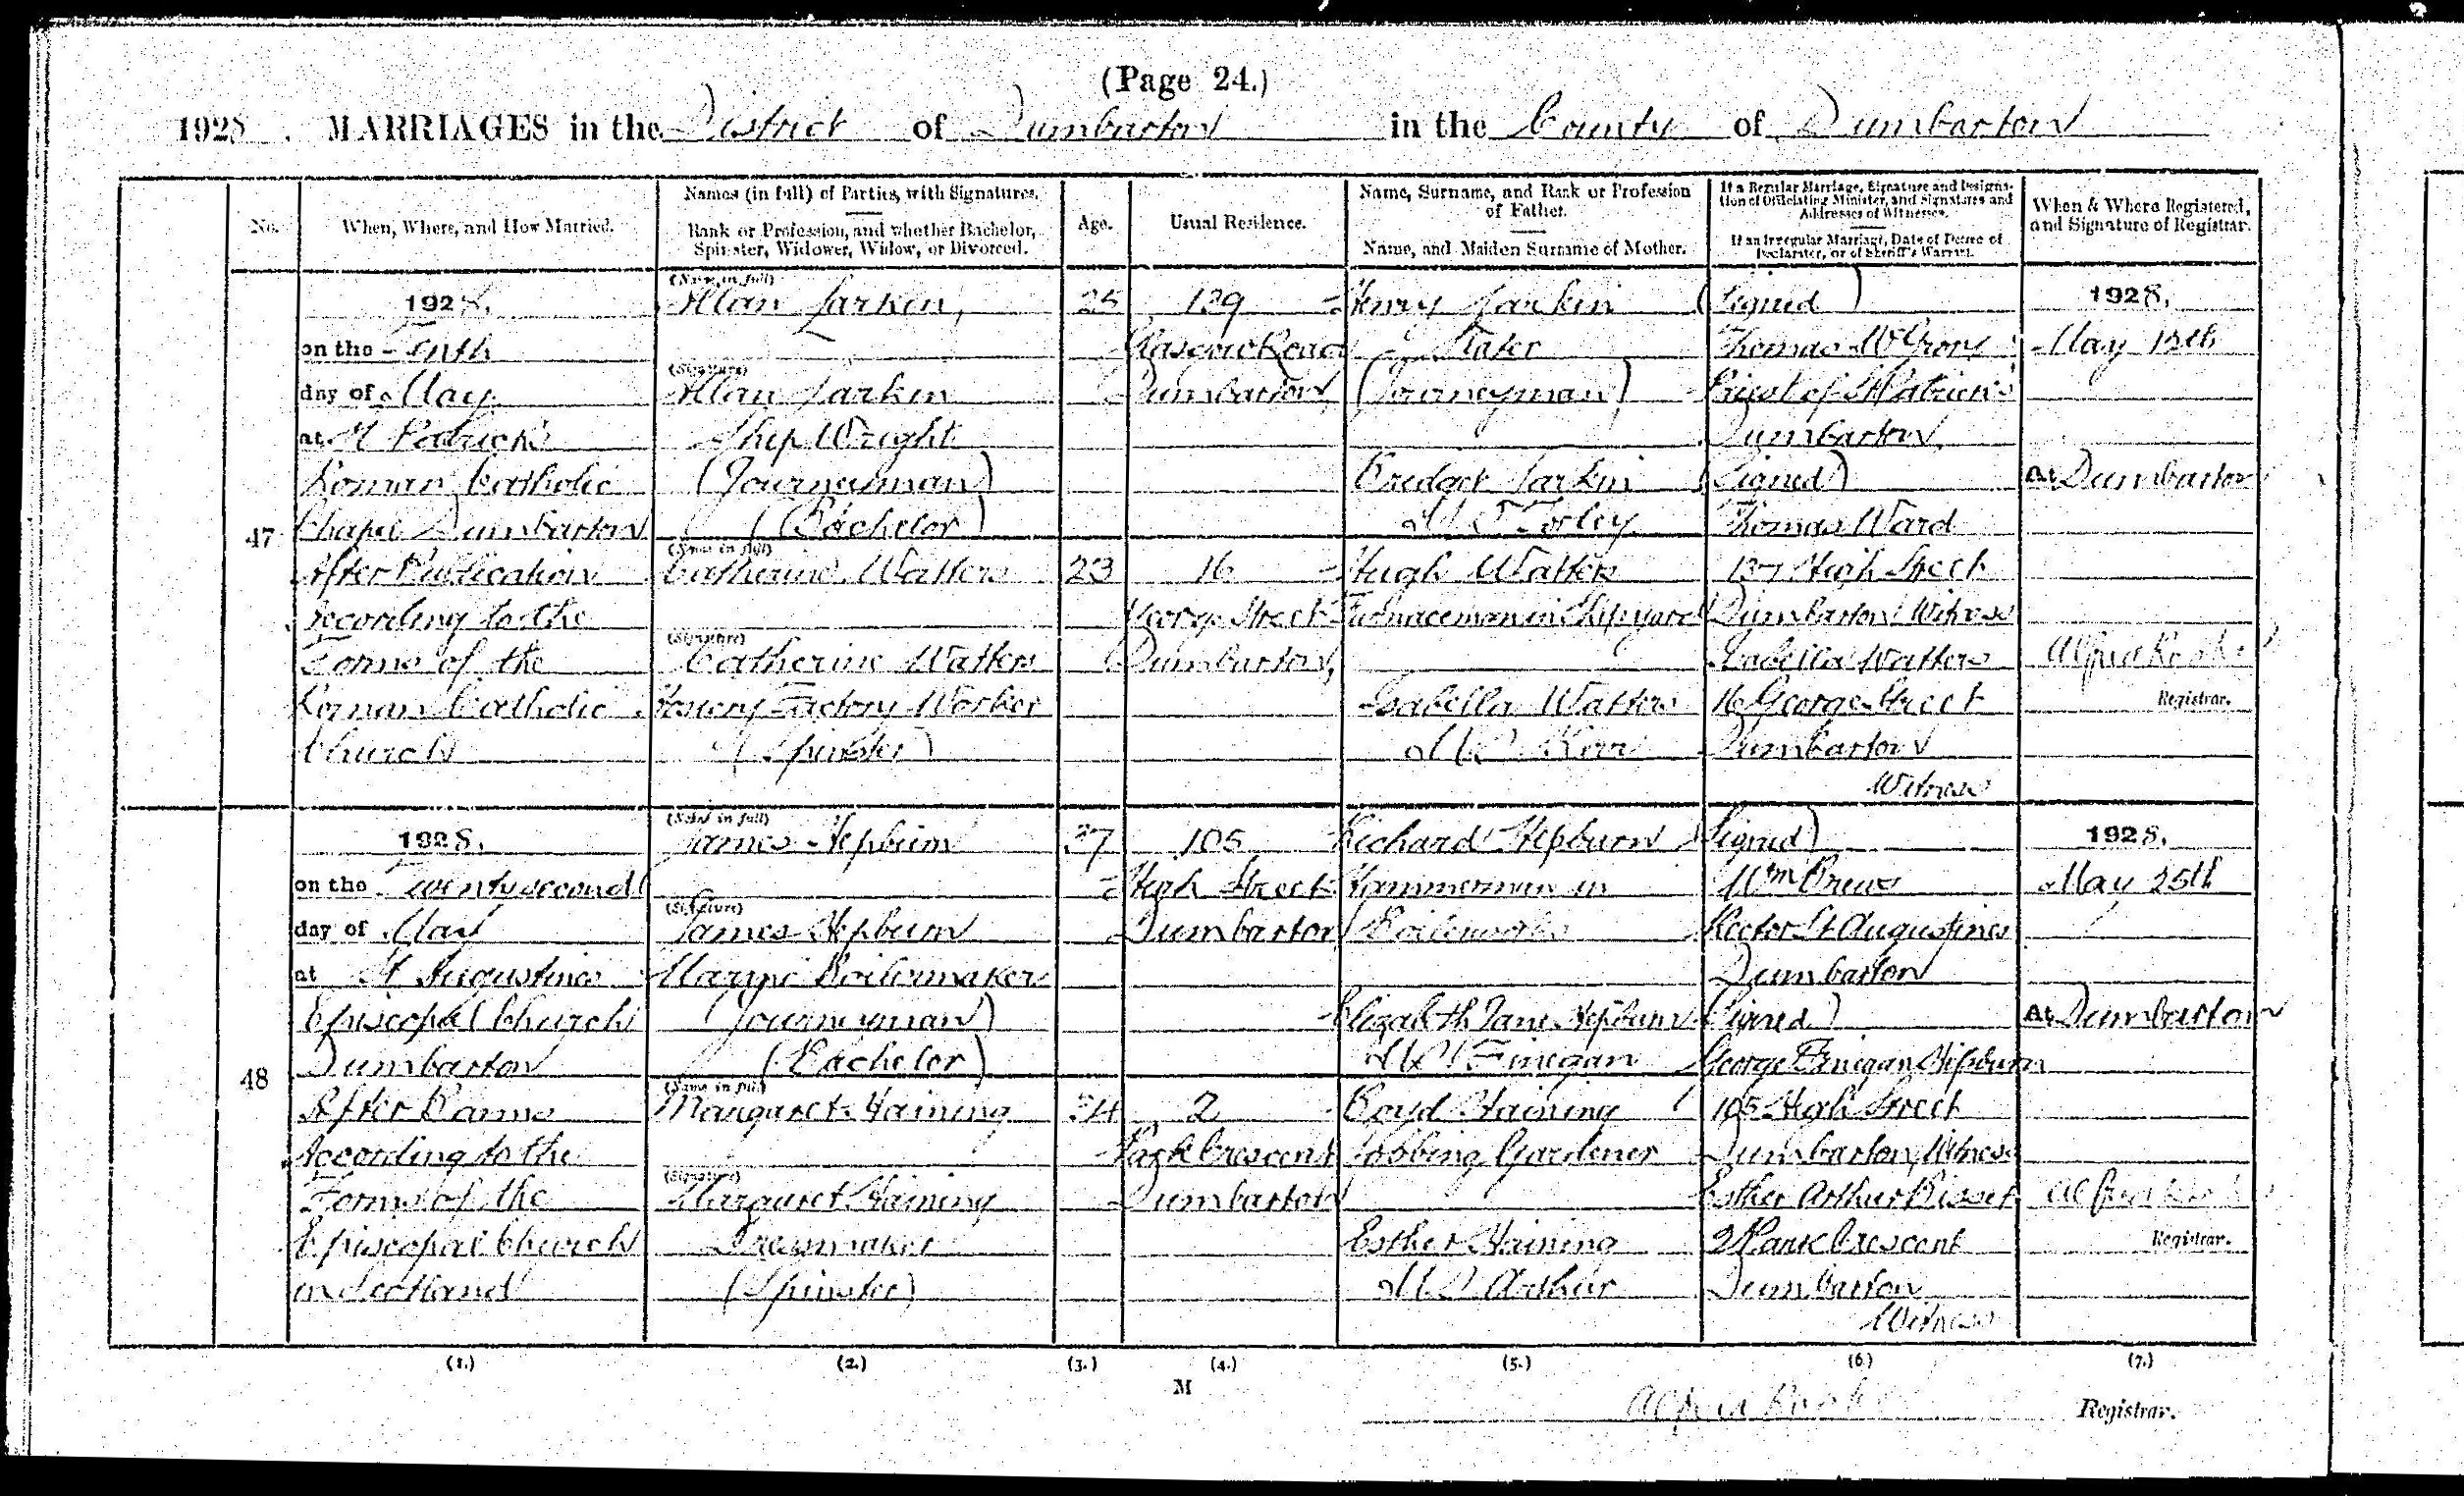 (Page 24.)
1928. MARRIAGES in the District of Dumbarton in the County of Dumbarton
No.
When, Where, and How Married.
Names (in full) of Parties, with Signatures.
Rank or Profession, and whether Bachelor,
Spinster, Widower, Widow, or Divorced.
Age.
Usual Residence.
Name, Surname, and Rank or Profession
of Father.
Name, and Maiden Surname of Mother.
If a Regular Marriage, Signature and Designa-
tion of Officiating Minister, and Signatures and
Addresses of Witnesses.
If an Irregular Marriage, Date of Decree of
Declarator, or of Sheriff's Warrant.
When & Where Registered,
and Signature of Registrar.
47
1928.
on the Tenth
day of May
at St Patrick's
Roman Catholic
Chapel Dumbarton
After Publication
According to the
Forms of the
Roman Catholic
Church
(Name in full)
Allan Larkin,
(Signature)
Allan Larkin
Ship Wright
(Journeyman)
(Bachelor)
(Name in full)
Catherine Watters
(Signature)
Catherine Watters
Hosiery Factory Worker
(Spinster)
25
23
129
Glasgow Road
Dumbarton,
16
George Street
Dumbarton,
Henry Larkin
Slater
(Journeyman)
Bridget Larkin
M.S. Torley
Hugh Watters
Furnaceman in Shipyard
Isabella Watters
M.S. Kerr
(Signed)
Thomas McGrory
Priest of St Patrick's
Dumbarton
(Signed)
Thomas Ward
137 High Street
Dumbarton Witness
Isabella Watters
16 George Street
Dumbarton
Witness
1928,
May 12th
At Dumbarton
Registrar.
48
1928.
on the Twentysecond
day of May
at St Augustines
Episcopal Church
Dumbarton
After Banns
According to the
Forms of the
Episcopal Church
in Scotland
(Name in full)
James Hepburn
(Signature)
James Hepburn
Marine Boilermaker
(Journeyman)
(Bachelor)
(Name in full)
Margaret Haining
(Signature)
Margaret Haining
Dressmaker
(Spinster)
37
34
105
High Street
Dumbarton
2
Park Crescent
Dumbarton
Richard Hepburn
Hammerman in
Boilerworks
Elizabeth Jane Hepburn
M.S. Finegan
Boyd Haining
Jobbing Gardener
Esther Haining
M.S. Arthur
(Signed)
Wm Brew
Rector St Augustines
Dumbarton
(Signed)
George Finegan Hepburn
105 High Street
Dumbarton, Witness
Esther Arthur Bisset
2 Park Crescent
Dumbarton
Witness
1928.
May 25th
At Dumbarton
Registrar.
(1.) (2.) (3.) (4.) (5.) (6.) (7.)
M
Registrar.